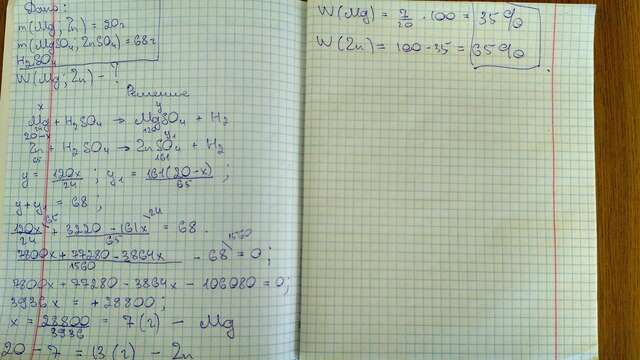 Дано:
m(Mg; Zn) = 20г
m(MgSO4; ZnSO4) = 68г
H2SO4
W(Mg; Zn) - ?
Решение
x y
Mg + H2SO4 → MgSO4 + H2
24 120
20-x y1
Zn + H2SO4 → ZnSO4 + H2
65 161
y = 120x/24 ; y1 = 161(20-x)/65 ;
y + y1 = 68 ;
120x/24 \65 + 3220 - 161x/65 \24 = 68.
7800x + 77280 - 3864x/1560 - 68 \1560 = 0;
7800x + 77280 - 3864x - 106080 = 0;
3936x = +28800;
x = 28800/3936 = 7(г) - Mg
20 - 7 = 13(г) - Zn
W(Mg) = 7/20 · 100 = 35%
W(Zn) = 100 - 35 = 65%.